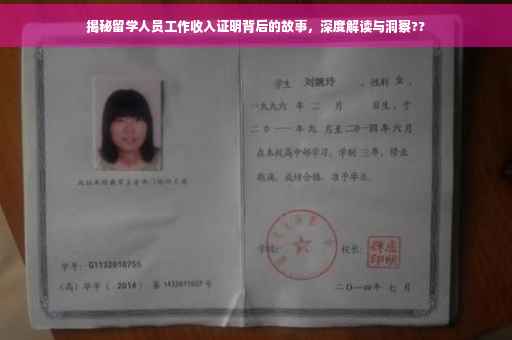 揭秘留学人员工作收入证明背后的故事，深度解读与洞察??
学生 刘婉玲 ，性别 女 ，
一九九六 年 二 月 日生，于
二〇一一年九 月至二〇一四年六月
在本校高中部学习，学制 三年，修业
期满，成绩合格，准予毕业。
学校： 校长：
学号： G1132010755
（高）毕字（ 2014 ）第 1432011027 号
二〇一四年 七 月